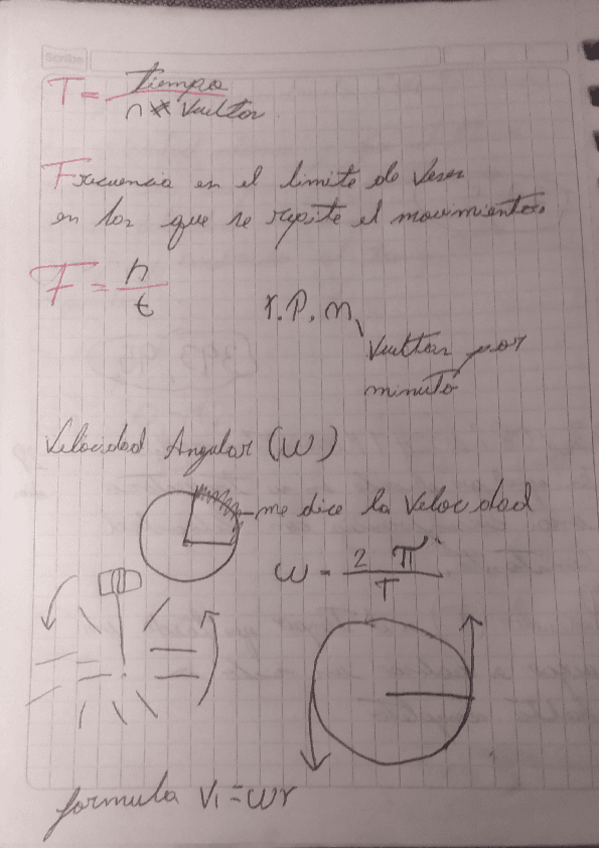 Scribe
T = Tiempo
n# Vueltas
Frecuencia es el limite de veses
en las que se repite el movimiento.
F = n
t
r.P.m.
Vueltas por
minuto
Velocidad Angular (W)
me dice la Velocidad
ω = 2 π
T
formula V₁ = ωr